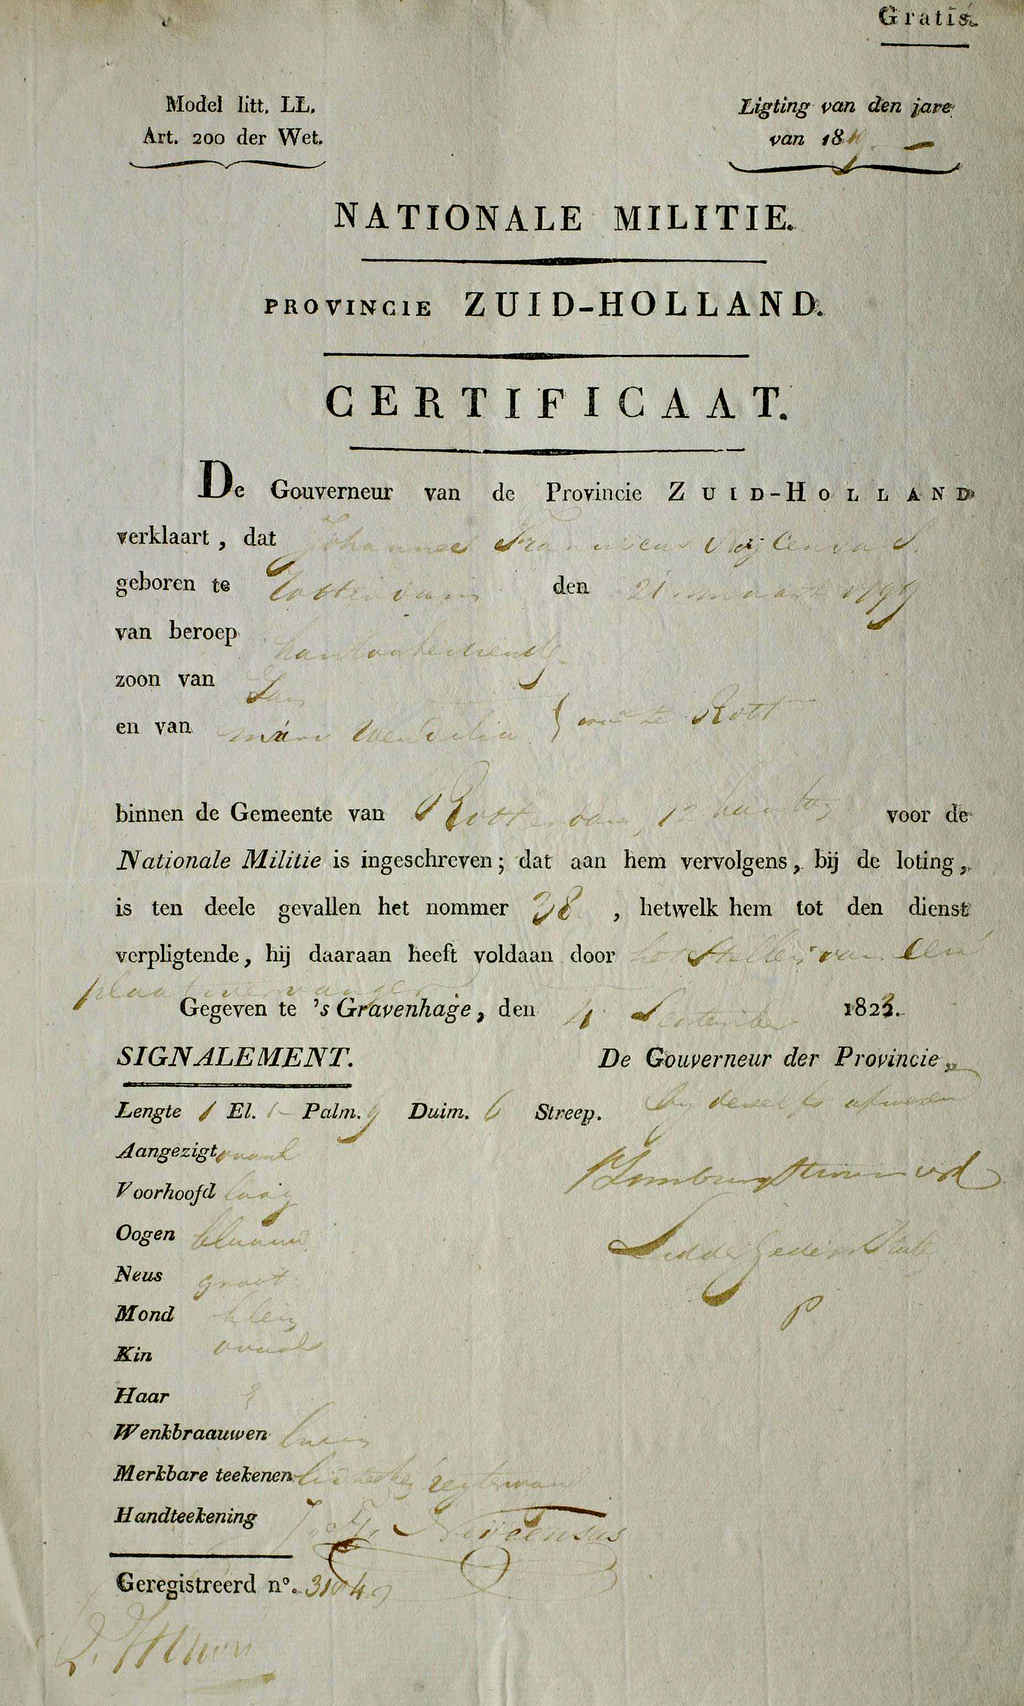 Gratis.
Model litt. LL.
Art. 200 der Wet.
Ligting van den jare
van 18
NATIONALE MILITIE.
PROVINCIE ZUID-HOLLAND.
CERTIFICAAT.
De Gouverneur van de Provincie ZUID-HOLLAND
verklaart, dat Johannes Franciscus
geboren te Rotterdam den 21 maart 1799
van beroep kantoorbediende
zoon van Jan
en van te Rott
binnen de Gemeente van Rotterdam, kanton voor de
Nationale Militie is ingeschreven; dat aan hem vervolgens, bij de loting,
is ten deele gevallen het nommer 38, hetwelk hem tot den dienst
verpligtende, hij daaraan heeft voldaan door het stellen van een
plaatsvervanger
Gegeven te 's Gravenhage, den 4 September 1823.
SIGNALEMENT.
De Gouverneur der Provincie,
Lengte 1 El. 6 Palm. 9 Duim. 6 Streep.
bij deszelfs afwezen
Aangezigt ovaal
Voorhoofd laag
Oogen blaauw
Neus groot
Mond klein
Kin ovaal
Haar
Wenkbraauwen bruin
Merkbare teekenen
Handteekening
Geregistreerd n°. 3104